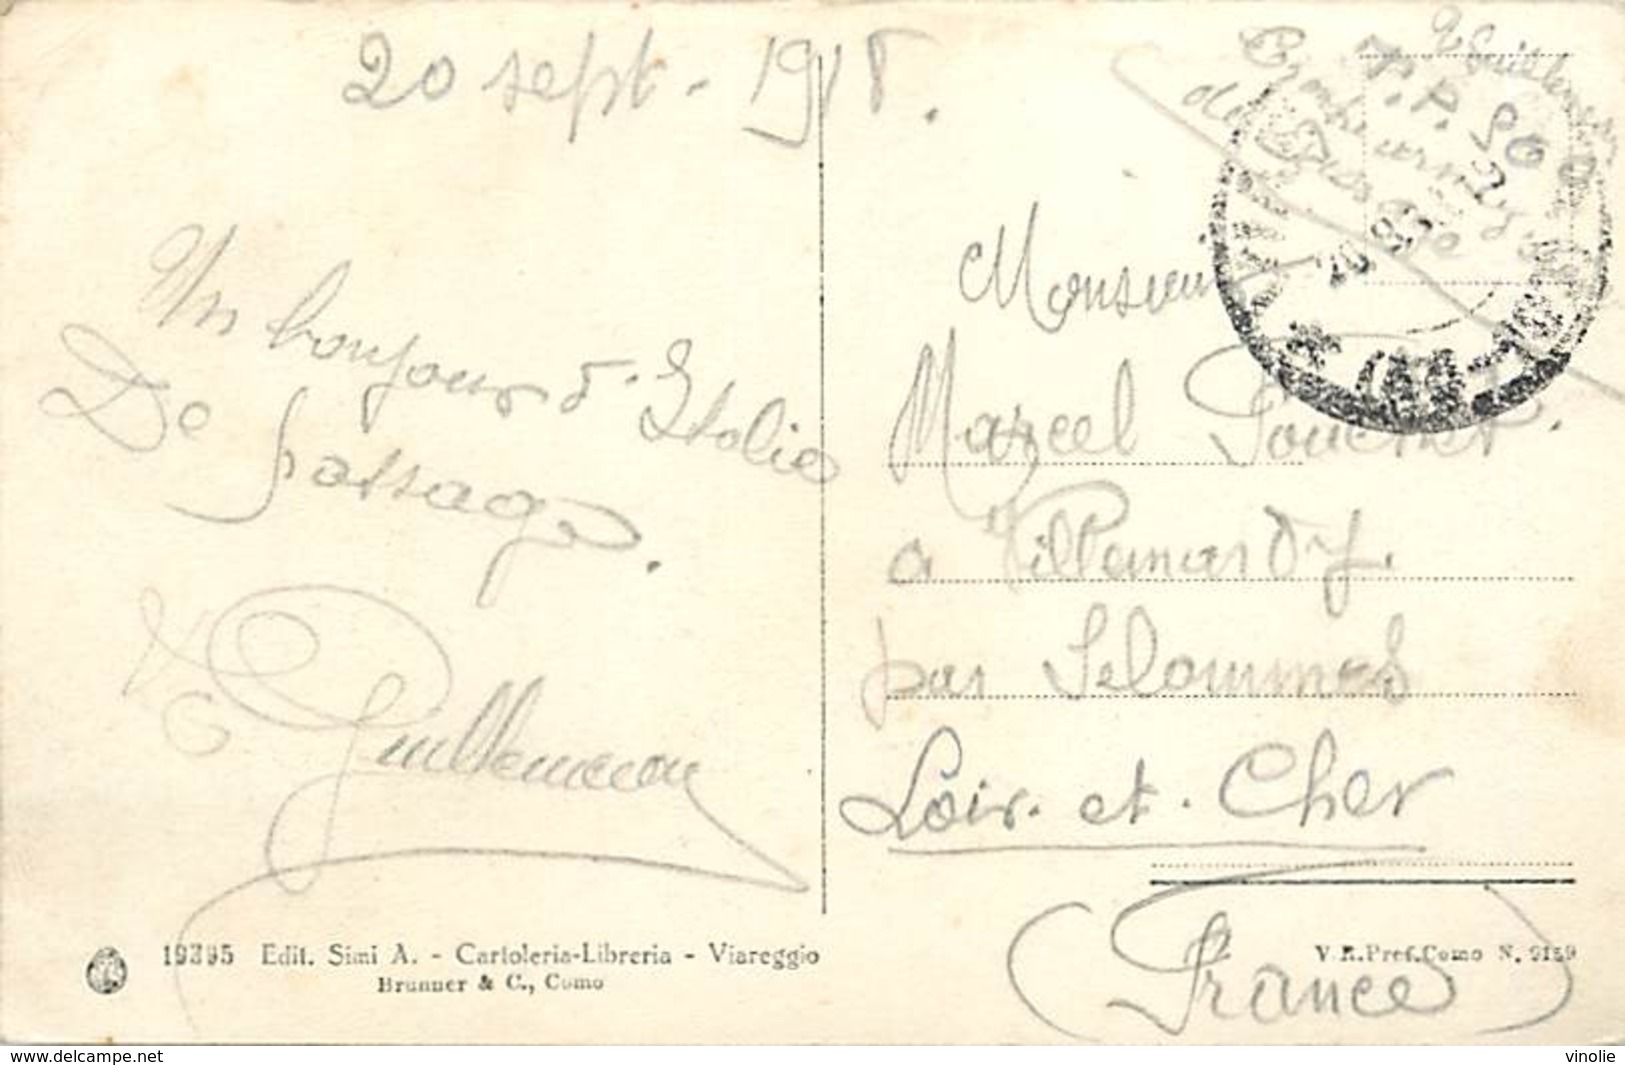 20 sept. 1918.
Un bonjour d'Italie
De passage.
Guillemeau
Monsieur
Marcel Pouchet.
a Villemardy.
par Selommes
Loir-et-Cher
(France)
19395 Edit. Simi A. - Cartoleria-Libreria - Viareggio
Brunner & C., Como
V. R. Pref. Como N. 9159
www.delcampe.net
vinolie